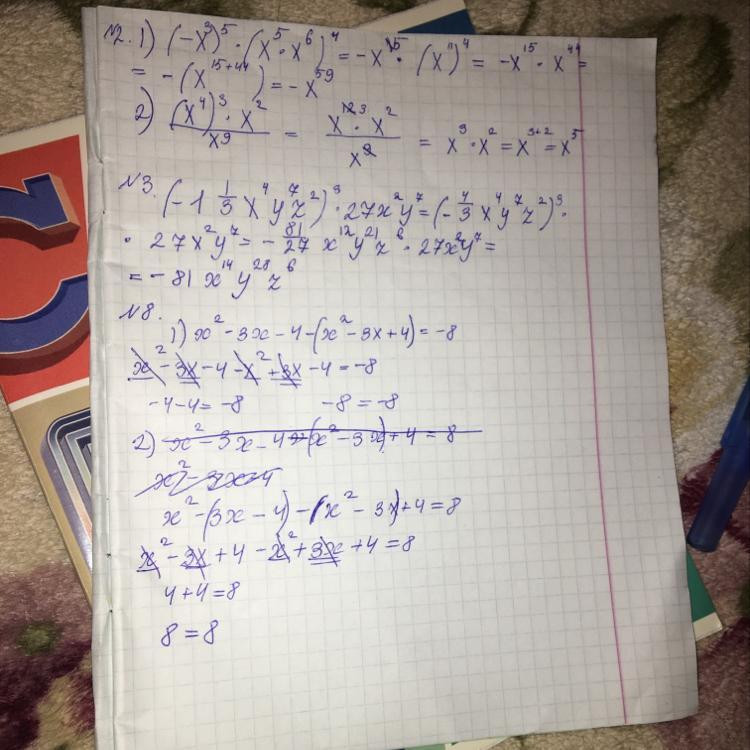 №2. 1) (-x³)⁵ · (x⁵ · x⁶)⁴ = -x¹⁵ · (x¹¹)⁴ = -x¹⁵ · x⁴⁴ =
= -(x¹⁵⁺⁴⁴) = -x⁵⁹
2) (x⁴)³ · x² / x⁹ = x¹²³ · x² / x⁹ = x³ · x² = x³⁺² = x⁵
№3. (-1 1/3 x⁴ y⁷ z²)³ · 27x²y⁷ = (-4/3 x⁴ y⁷ z²)³ ·
· 27x²y⁷ = -81/27 x¹² y²¹ z⁶ · 27x²y⁷ =
= -81 x¹⁴ y²⁸ z⁶
№8.
1) x² - 3x - 4 - (x² - 3x + 4) = -8
x² - 3x - 4 - x² + 3x - 4 = -8
-4 - 4 = -8 -8 = -8
2) x² - 3x - 4 - (x² - 3x) + 4 = 8
x² - 3x - 4
x² - (3x - 4) - (x² - 3x) + 4 = 8
x² - 3x + 4 - x² + 3x + 4 = 8
4 + 4 = 8
8 = 8